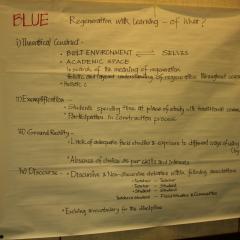 BLUE Regeneration with Learning - of What?
i) Theoretical Construct -
• BUILT ENVIRONMENT SELVES
• ACADEMIC SPACE
In search of the meaning of regeneration
Holistic and layered understanding of regeneration throughout
• Holistic
ii) Exemplification -
• Students spending time at place of activity with traditional
• Participation in construction process
iii) Ground Reality -
• Lack of adequate field studies & exposure to different ways of
• Absence of choice as per skills and interests
iv) Discourse -
• Discursive & Non-discursive debates within following associations
- Teacher - Teacher
- Teacher - Student
- Student - Student
Teachers & Student - Field Studies & Communities
• Evolving vocabulary for the discipline